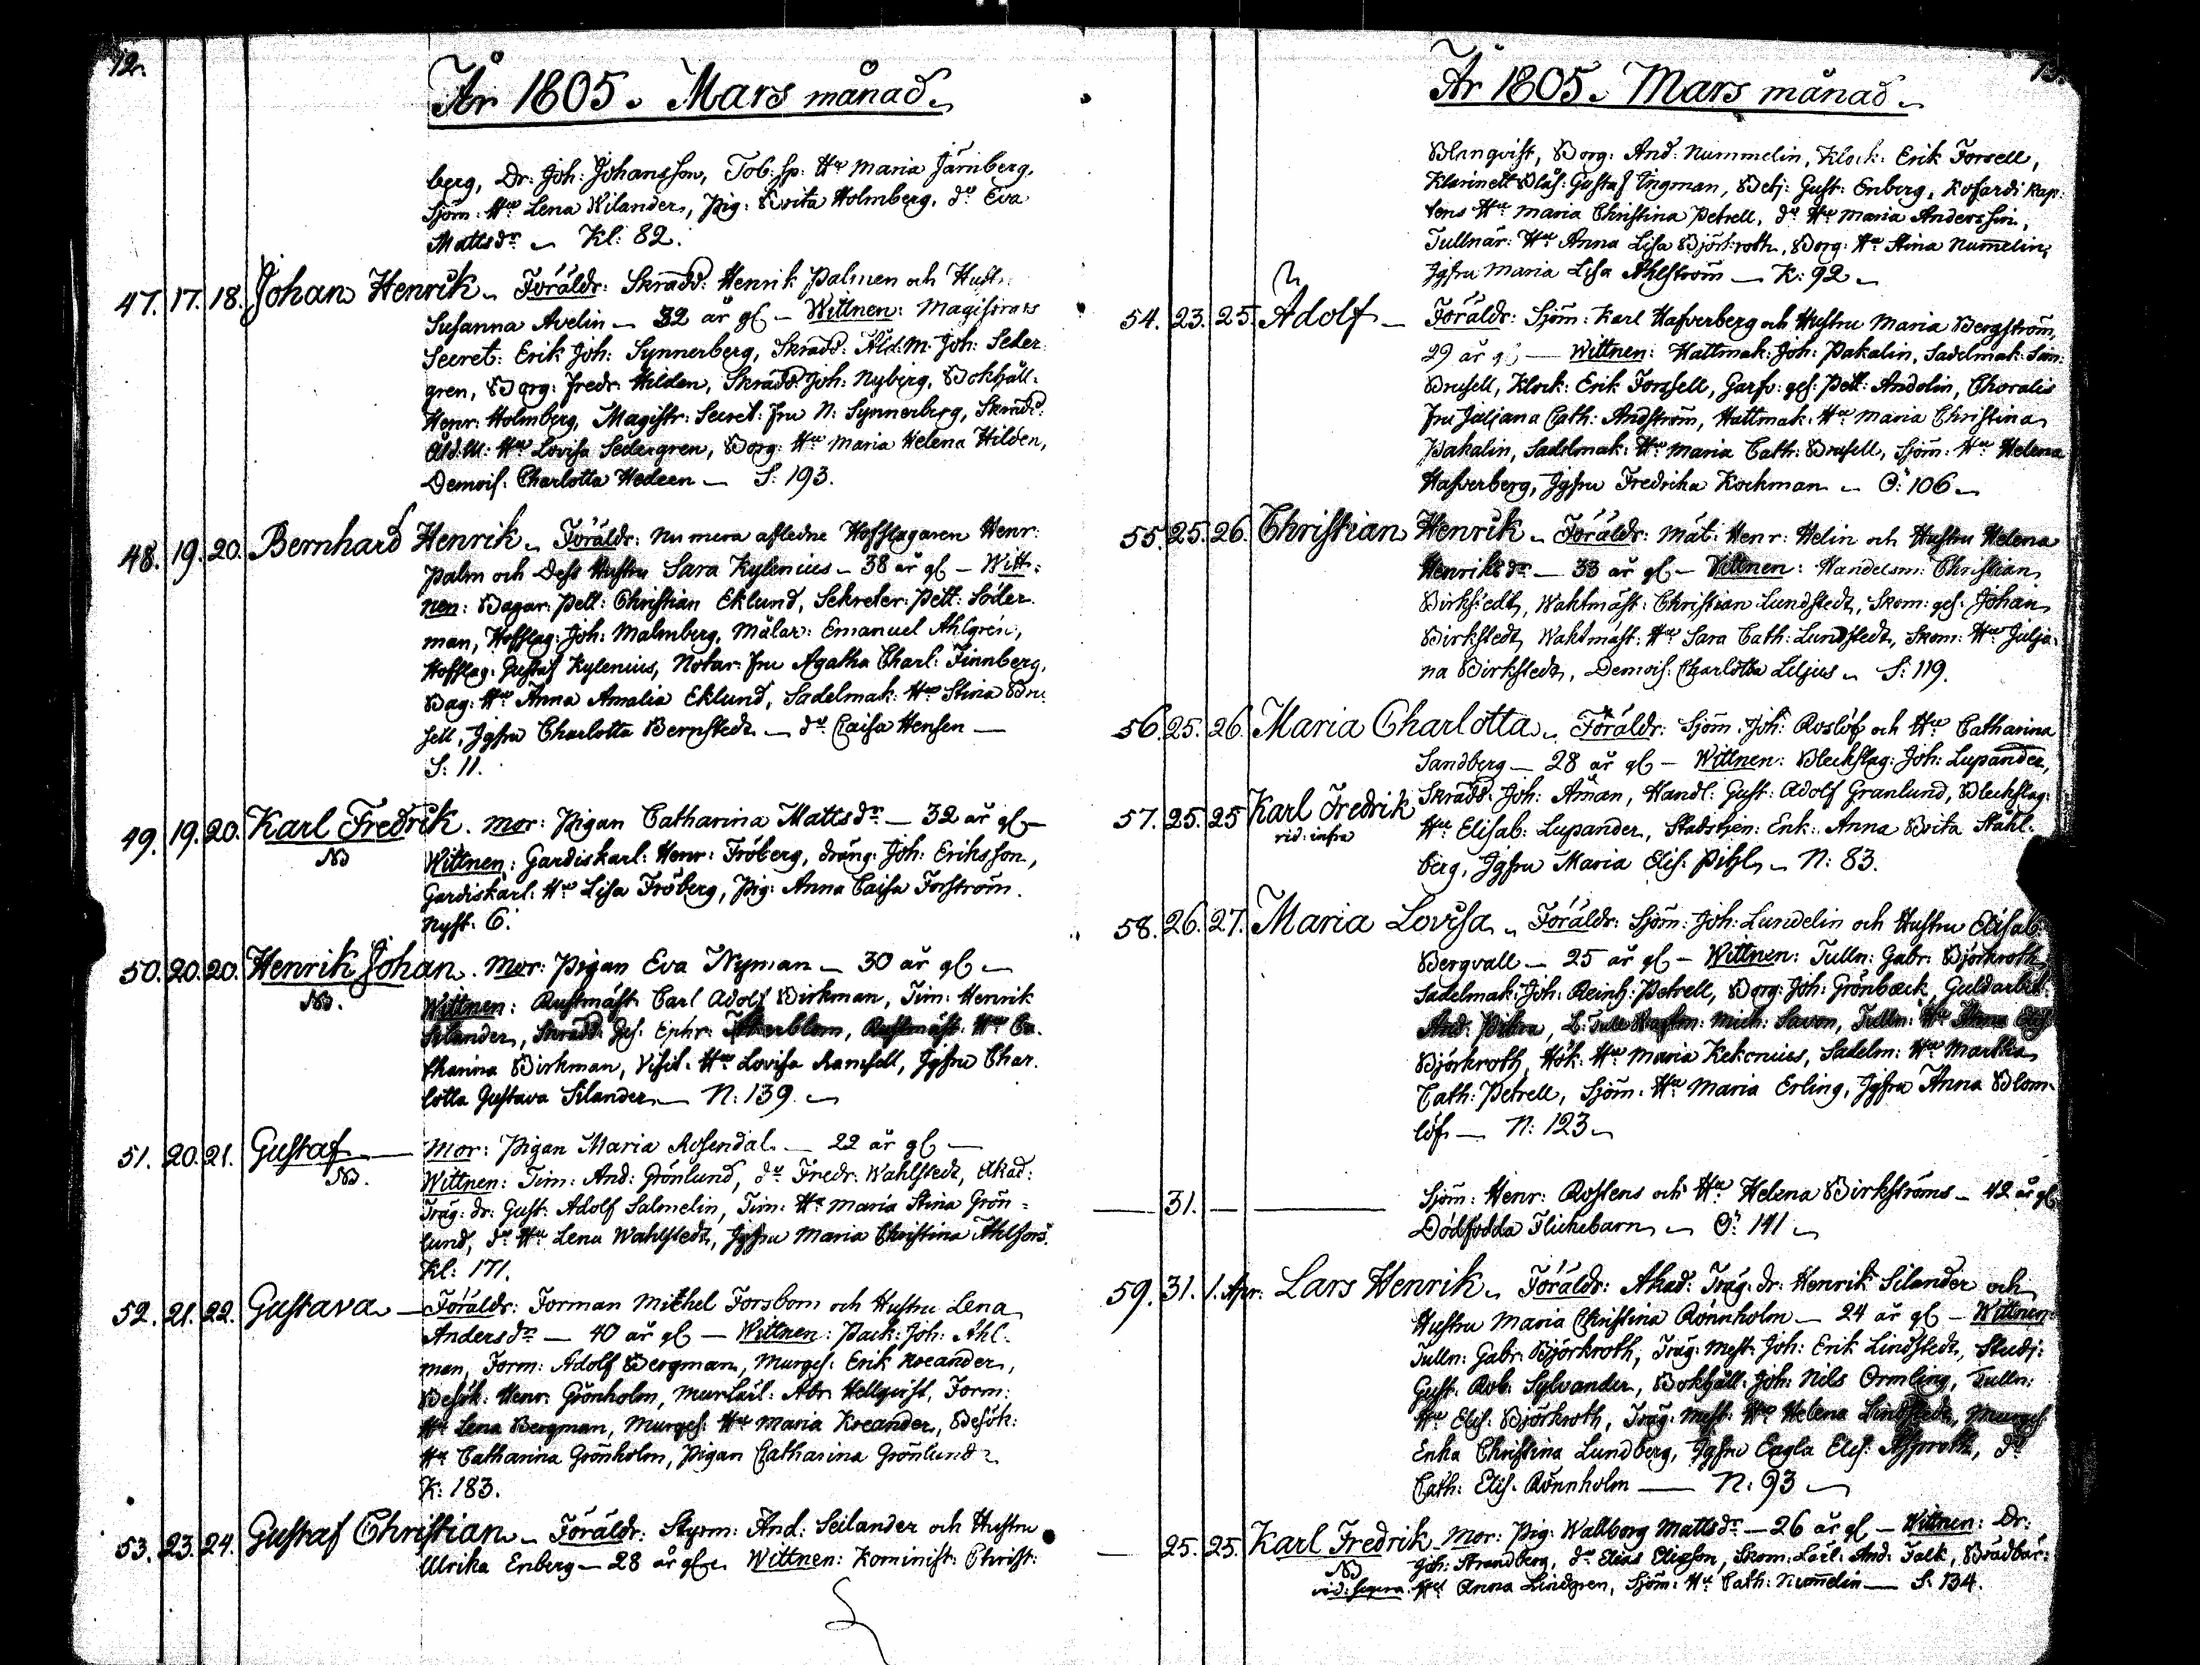 12.
År 1805. Mars månad.
berg, Dr: Joh: Johansson, Tob: sp: Hu Maria Järnberg,
Sjöm: Hu Lena Wilander, Pig: Brita Holmberg, do Eva
Mattsdr Kl: 82.
47. 17. 18. Johan Henrik. Föräldr: Skrädd: Henrik Palmen och Hust:
Susanna Avelin — 32 år gl — Wittnen: Magistrats
Secret: Erik Joh: Synnerberg, Skrädd: Åld:M: Joh: Seder
gren, Borg: Fredr: Hilden, Skrädd: Joh: Nyberg, Bokhåll:
Henr: Holmberg, Magistr: Secret: Fru N: Synnerberg, Skrädd:
Åld.M: Hu Lovisa Sedergren, Borg: Hu Maria Helena Hilden,
Demois: Charlotta Hedeen — S: 193.
48. 19. 20. Bernhard Henrik. Föräldr: Nu mera afledne Hofslagaren Henr:
Palm och Dess Hustru Sara Kylenius — 38 år gl — Witt-
nen: Bagar: Pett: Christian Eklund, Sekreter: Pett: Söder
man, Hofslag: Joh: Malmberg, Målar: Emanuel Ahlgrén,
Hofslag: Gustaf Kylenius, Notar: Fru Agatha Charl: Finnberg,
Bag: Hu Anna Amalia Eklund, Sadelmak: Hu Stina Bru
sell, Jgfru Charlotta Bernstedt — do Caisa Hensen —
S: 11.
49. 19. 20. Karl Fredrik. Mor: Pigan Catharina Mattsdr — 32 år gl —
NB
Wittnen: Gardiskarl: Henr: Fröberg, dräng: Joh: Eriksson,
Gardiskarl: Hu Lisa Fröberg, Pig: Anna Caisa Forström.
Nyst: 6.
50. 20. 20. Henrik Johan. Mor: Pigan Eva Nyman — 30 år gl —
NB.
Wittnen: Rustmäst: Carl Adolf Birkman, Tim: Henrik
Silander, Skrädd: Ges: Ephr: Rustmäst: Hu Ca-
tharina Birkman, Visit: Hu Lovisa Ramsell, Jgfru Char
lotta Gustava Silander — N: 139.
51. 20. 21. Gustaf — Mor: Pigan Maria Rosendal — 22 år gl —
NB.
Wittnen: Tim: And: Grönlund, do Fredr: Wahlstedt, Akad:
Träg: dr: Gust: Adolf Salmelin, Tim: Hu Maria Stina Grön-
lund, do Hu Lena Wahlstedt, Jgfru Maria Christina Ahlfors.
Kl: 171.
52. 21. 22. Gustava — Föräldr: Forman Michel Forsbom och Hustru Lena
Andersdr — 40 år gl — Wittnen: Pack: Joh: Åhl-
man, Form: Adolf Bergman, Murges: Erik Koeander,
Besök: Henr: Grönholm, Murlärl: Abr: Hellqvist, Form:
Hu Lena Bergman, Murges: Hu Maria Koeander, Besök:
Hu Catharina Grönholm, Pigan Catharina Grönlund
K: 183.
53. 23. 24. Gustaf Christian — Föräldr: Styrm: And: Seilander och Hustru
Ulrika Enberg — 28 år gl. Wittnen: Kominist: Christ:
13.
År 1805. Mars månad.
Blanqvist, Borg: And: Nummelin, Klock: Erik Forsell,
Klarinett Blås: Gustaf Ingman, Betj: Gust: Enberg, Kofardi Kap-
tens Hu Maria Christina Petrell, do Hu Maria Andersson,
Tullnär: Hu Anna Lisa Björkroth, Borg: Hu Stina Numelin,
Jgfru Maria Lisa Ahlström — K: 92
54. 23. 25. Adolf — Föräldr: Sjöm: Karl Hafverberg och Hustru Maria Bergström,
29 år gl — Wittnen: Hattmak: Joh: Pakalin, Sadelmak: Sam:
Brusell, Klock: Erik Forssell, Garfv: ges: Pett: Andolin, Choralis
Fru Juliana Cath: Andström, Hattmak: Hu Maria Christina
Pakalin, Sadelmak: Hu Maria Cath: Brusell, Sjöm: Hu Helena
Hafverberg, Jgfru Fredrika Kockman — Ö: 106
55. 25. 26. Christian Henrik. Föräldr: Mät: Henr: Helin och Hustru Helena
Henriksdr — 33 år gl — Wittnen: Handelsm: Christian
Birkstedt, Waktmäst: Christian Lundstedt, Skom: ges: Johan
Birkstedt, Waktmäst: Hu Sara Cath: Lundstedt, Skom: Hu Julja-
na Birkstedt, Demois: Charlotta Liljus. S: 119.
56. 25. 26. Maria Charlotta. Föräldr: Sjöm: Joh: Roslöf och Hu Catharina
Sandberg — 28 år gl — Wittnen: Bleckslag: Joh: Lupander,
57. 25. 25 Karl Fredrik Skrädd: Joh: Åman, Handl: Gust: Adolf Granlund, Bleckslag:
vid: infra
Hu Elisab: Lupander, Stadstjen: Enk: Anna Brita Stahl-
berg, Jgfru Maria Elis: Pihl. N: 83.
58. 26. 27. Maria Lovisa. Föräldr: Sjöm: Joh: Lundelin och Hustru Elisab:
Bergvall — 25 år gl — Wittnen: Tulln: Gabr: Björkroth
Sadelmak: Joh: Reinh: Petrell, Borg: Joh: Grönbeck, Guldarbet:
And: Mich: Savon, Tulln: Hu
Björkroth, Hök: Hu Maria Kekonius, Sadelm: Hu Martha
Cath: Petrell, Sjöm: Hu Maria Erling, Jgfru Anna Blom-
löf — N: 123
— 31. — Sjöm: Henr: Rostens och Hu Helena Birkströms — 42 år gl
Dödfödda Flickebarn — Ö: 141
59. 31. 1. Apr: Lars Henrik. Föräldr: Akad: Träg: dr: Henrik Silander och
Hustru Maria Christina Rönnholm — 24 år gl — Wittnen:
Tulln: Gabr: Björkroth, Träg: Mest: Joh: Erik Lindstedt, Studj:
Gust: Rob: Sylvander, Bokhåll: Joh: Nils Ormling, Tulln:
Hu Elis: Björkroth, Träg: Mest: Hu Helena Lindstedt, Murges:
Enka Christina Lundberg, Jgfru Eagla Elis: do
Cath: Elis: Rönnholm — N: 93
— 25. 25. Karl Fredrik. Mor: Pig: Wallborg Mattsdr — 26 år gl — Wittnen: Dr:
NB
Joh: Strandberg, do Elias Eliasson, Skom: Lärl: And: Falk, Brädbär:
vid: supra. Hu Anna Lindgren, Sjöm: Hu Cath: Numelin — S: 134.